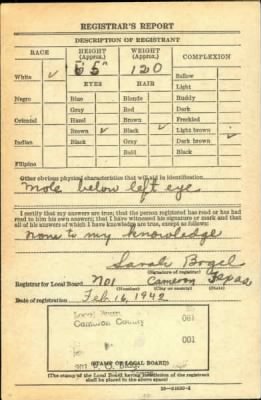 REGISTRAR'S REPORT
DESCRIPTION OF REGISTRANT
RACE
HEIGHT (Approx.)
WEIGHT (Approx.)
COMPLEXION
White ✓
5' 5"
120
Sallow
EYES
HAIR
Light
Negro
Blue
Blonde
Ruddy
Gray
Red
Dark
Oriental
Hazel
Brown
Freckled
Brown ✓
Black ✓
Light brown
Indian
Black
Gray
Dark brown ✓
Bald
Black
Filipino
Other obvious physical characteristics that will aid in identification
Mole below left eye
I certify that my answers are true; that the person registered has read or has had
read to him his own answers; that I have witnessed his signature or mark and that
all of his answers of which I have knowledge are true, except as follows:
None to my knowledge
Sarah
(Signature of registrar)
Registrar for Local Board No 1 Cameron Texas
(Number) (City or county) (State)
Date of registration Feb. 16, 1942
Local Board
Cameron County
061
001
P. O. Bldg.
(STAMP OF LOCAL BOARD)
(The stamp of the Local Board having jurisdiction of the registrant
shall be placed in the above space)